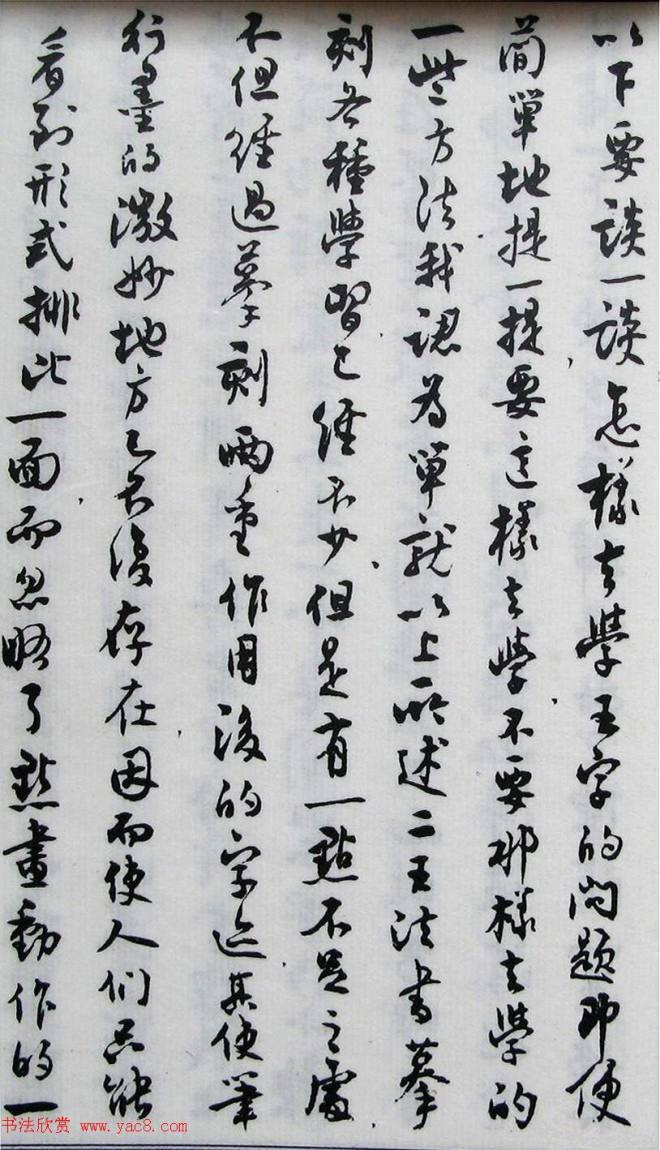 以下要談一談怎樣去學王字的問題即便
簡單地提一提要這樣去學不要那樣去學的
一些方法我認為單就以上所述二王法書摹
刻各種學習已經不少但是有一點不足之處
不但經過摹刻兩重作用後的字迹其使筆
行墨的微妙地方已不復存在因而使人们只能
看到形式排比一面而忽略了點畫動作的一
书法欣赏 www.yac8.com